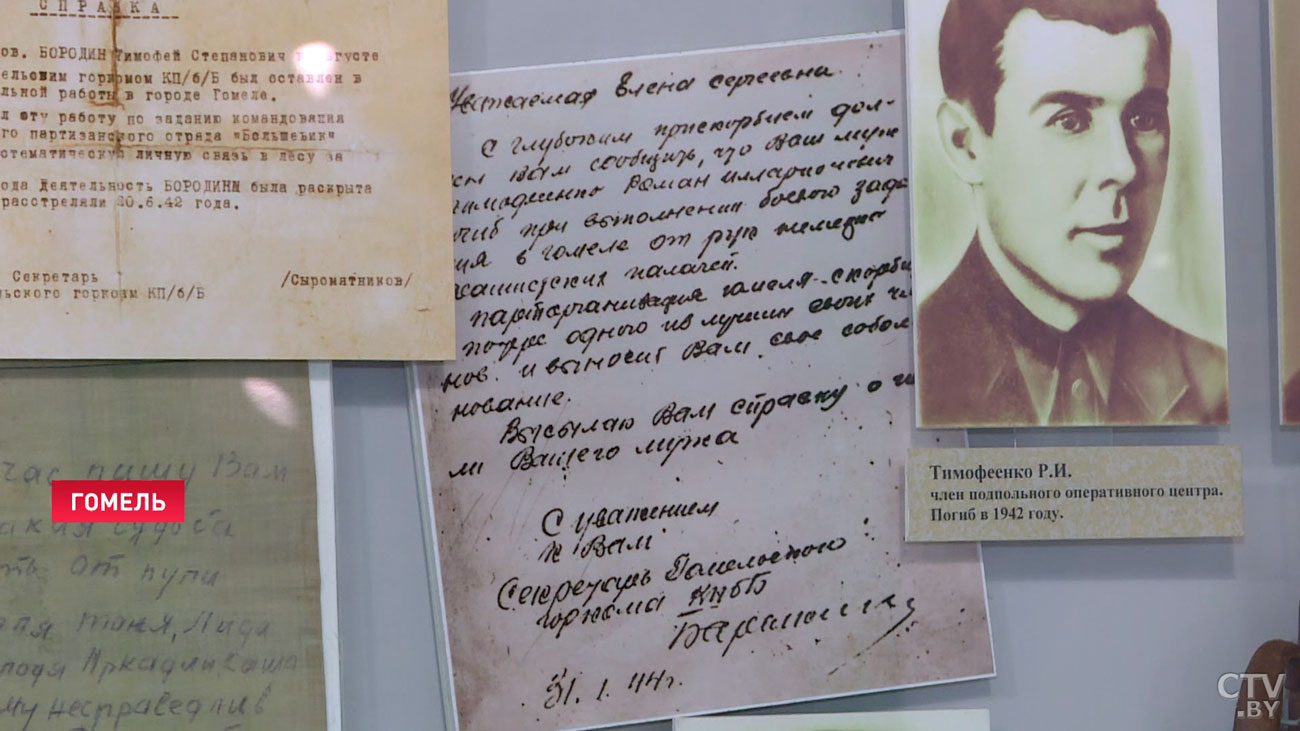 СПРАВКА
ов. БОРОДИН Тимофей Степанович в августе
ельским горкомом КП/б/Б был оставлен в
льной работы в городе Гомеле.
л эту работу по заданию командования
го партизанского отряда "Большевик"
стематическую личную связь в лесу за
ода Деятельность БОРОДИНА была раскрыта
расстреляли 20.6.42 года.
Секретарь
льского горкома КП/б/Б /Сыромятников/
Уважаемая Елена Сергеевна.
С глубоким прискорбием дол-
Вам сообщить, что Ваш муж
Роман Илларионович
при выполнении боевого зада
в Гомеле от рук немецко
палачей.
парторганизация Гомеля скорби
одного из лучших своих чл
нов и выносит Вам свое собол
нование.
Высылаю Вам справку о
ли Вашего мужа
С уважением
к Вам
Секретарь Гомельского
горкома КПбБ
31.1.44г.
час пишу Вам
судьба
ть от пули
Таня, Лида
Аркадий Саша
му несправедлив
Тимофеенко Р.И.
член подпольного оперативного центра.
Погиб в 1942 году.
ГОМЕЛЬ
CTV
.BY